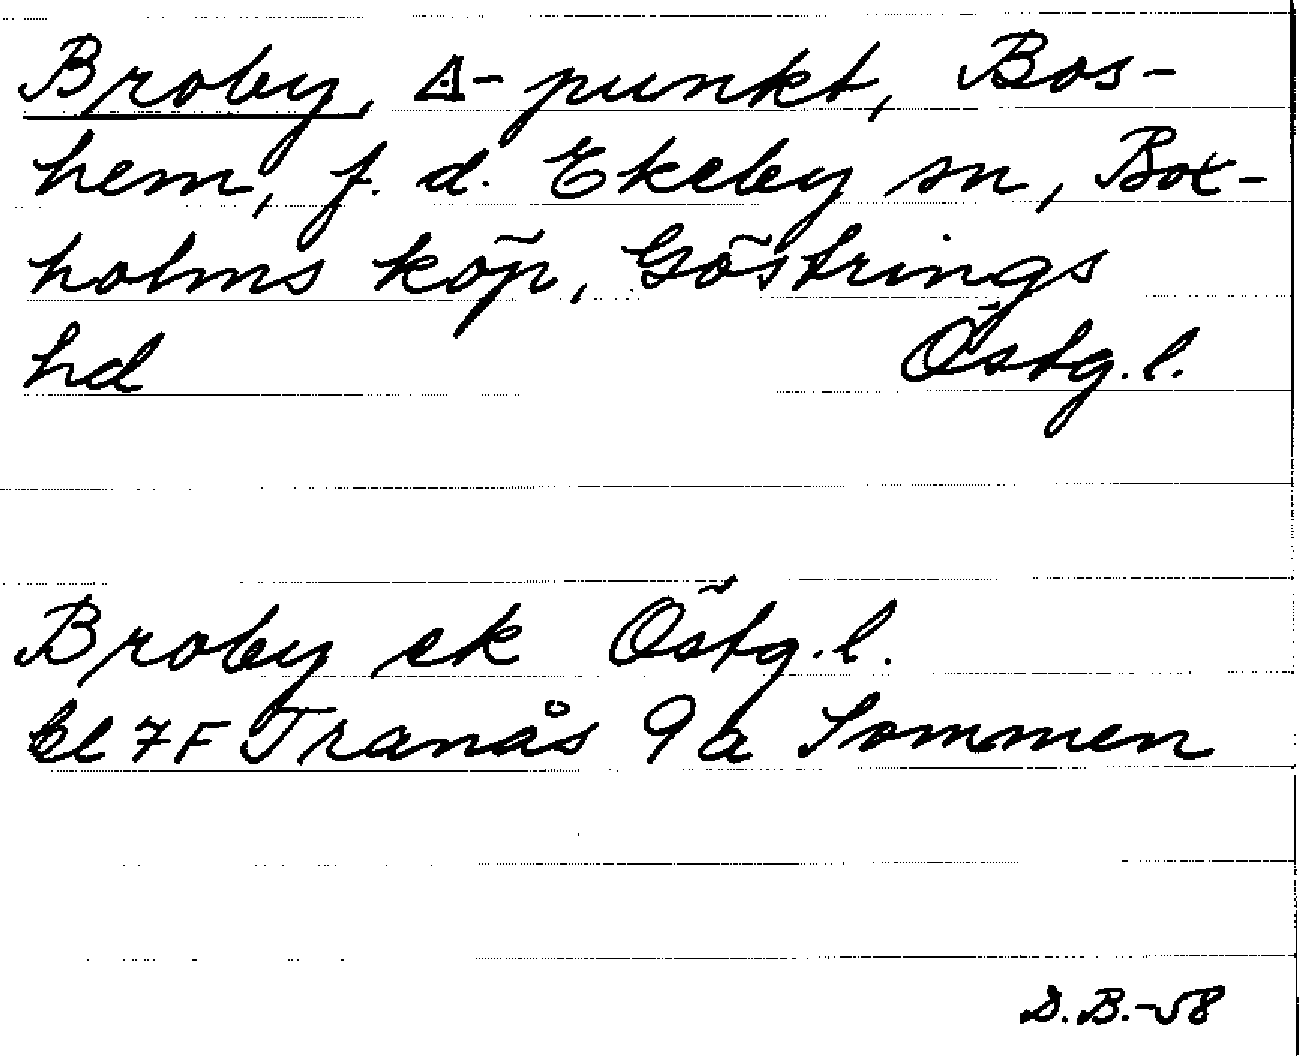 Broby, ∆-punkt, Bos-
hem, f. d. Ekeby sn, Box-
holms köp, Göstrings
hd Östg. l.
Broby ek Östg. l.
bl 7F Tranås 9a Sommen
D.B.-58